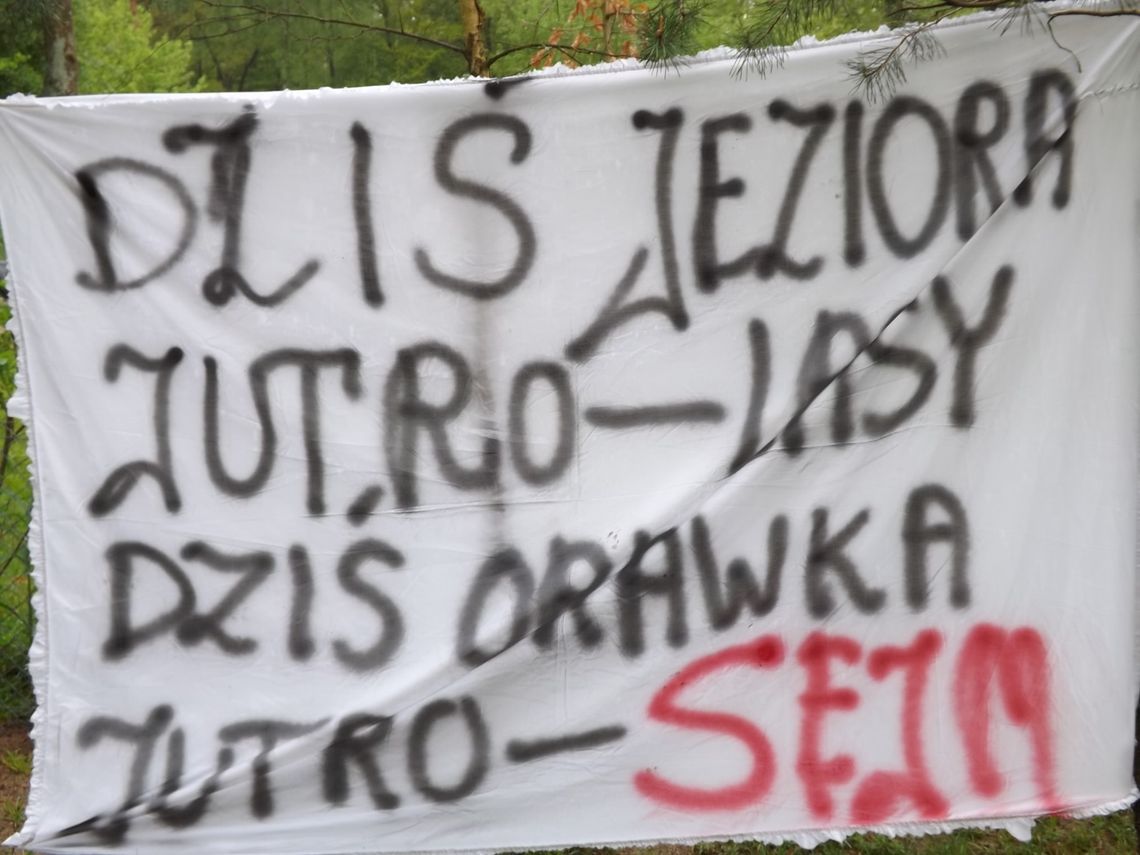 DZIŚ JEZIORA
JUTRO - LASY
DZIŚ ORAWKA
JUTRO - SEJM